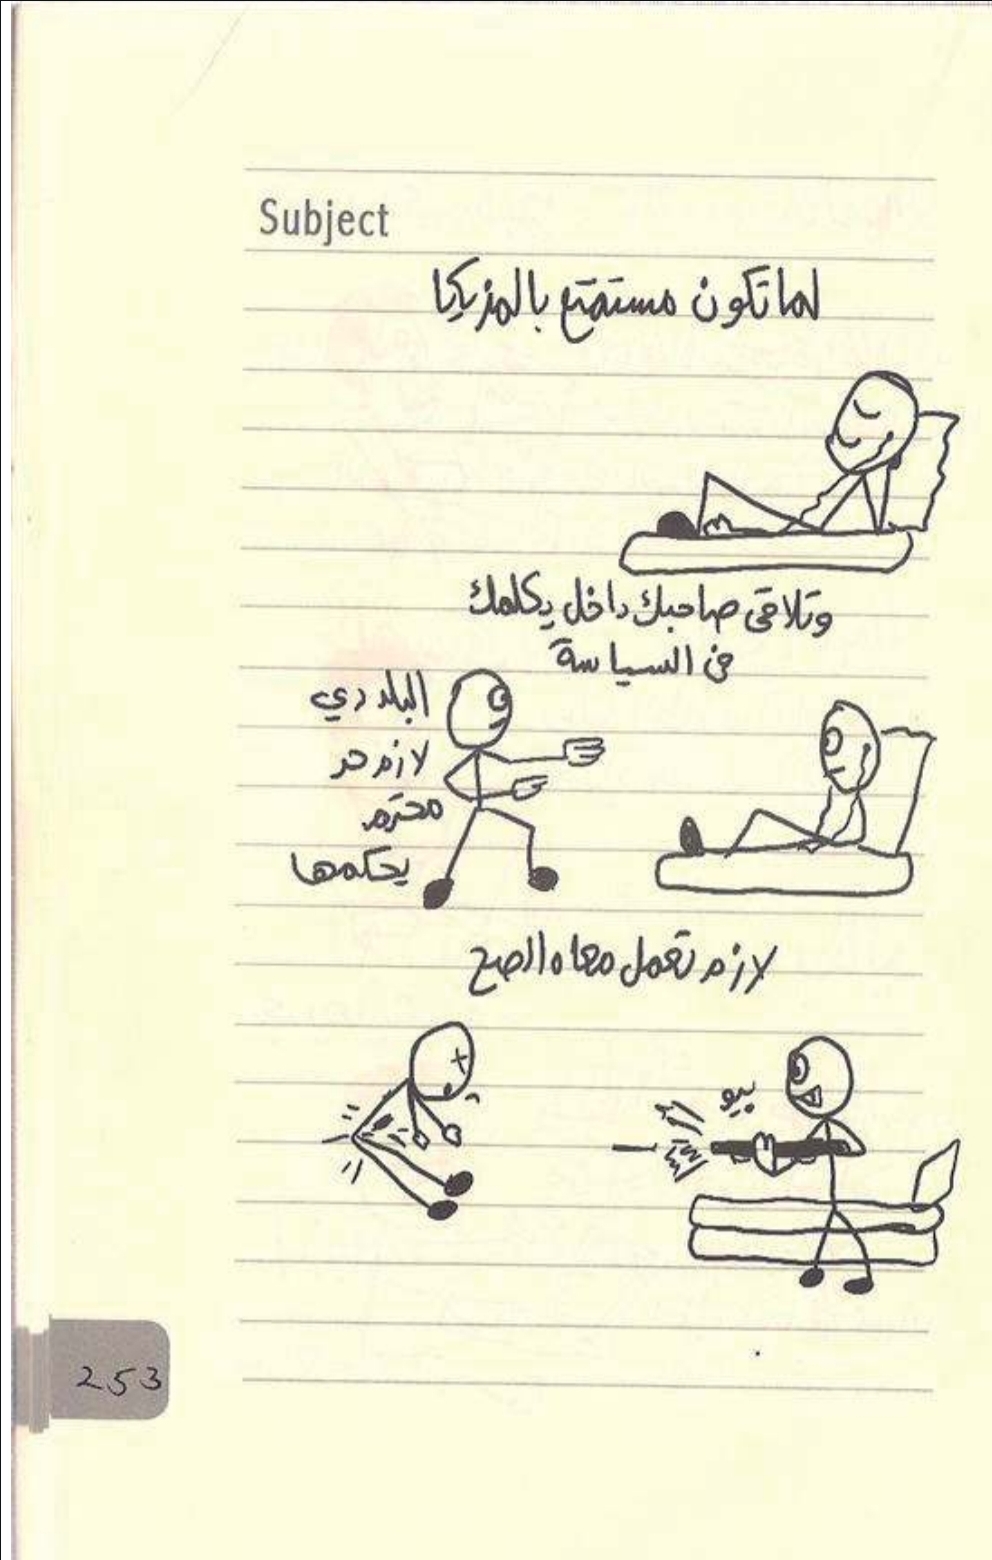 Subject
لما تكون مستمتع بالمزيكا
وتلاقى صاحبك داخل يكلمك
فى السياسة
البلد دي
لازم حد
محترم
يحكمها
لازم تعمل معاه الصح
بيو
253